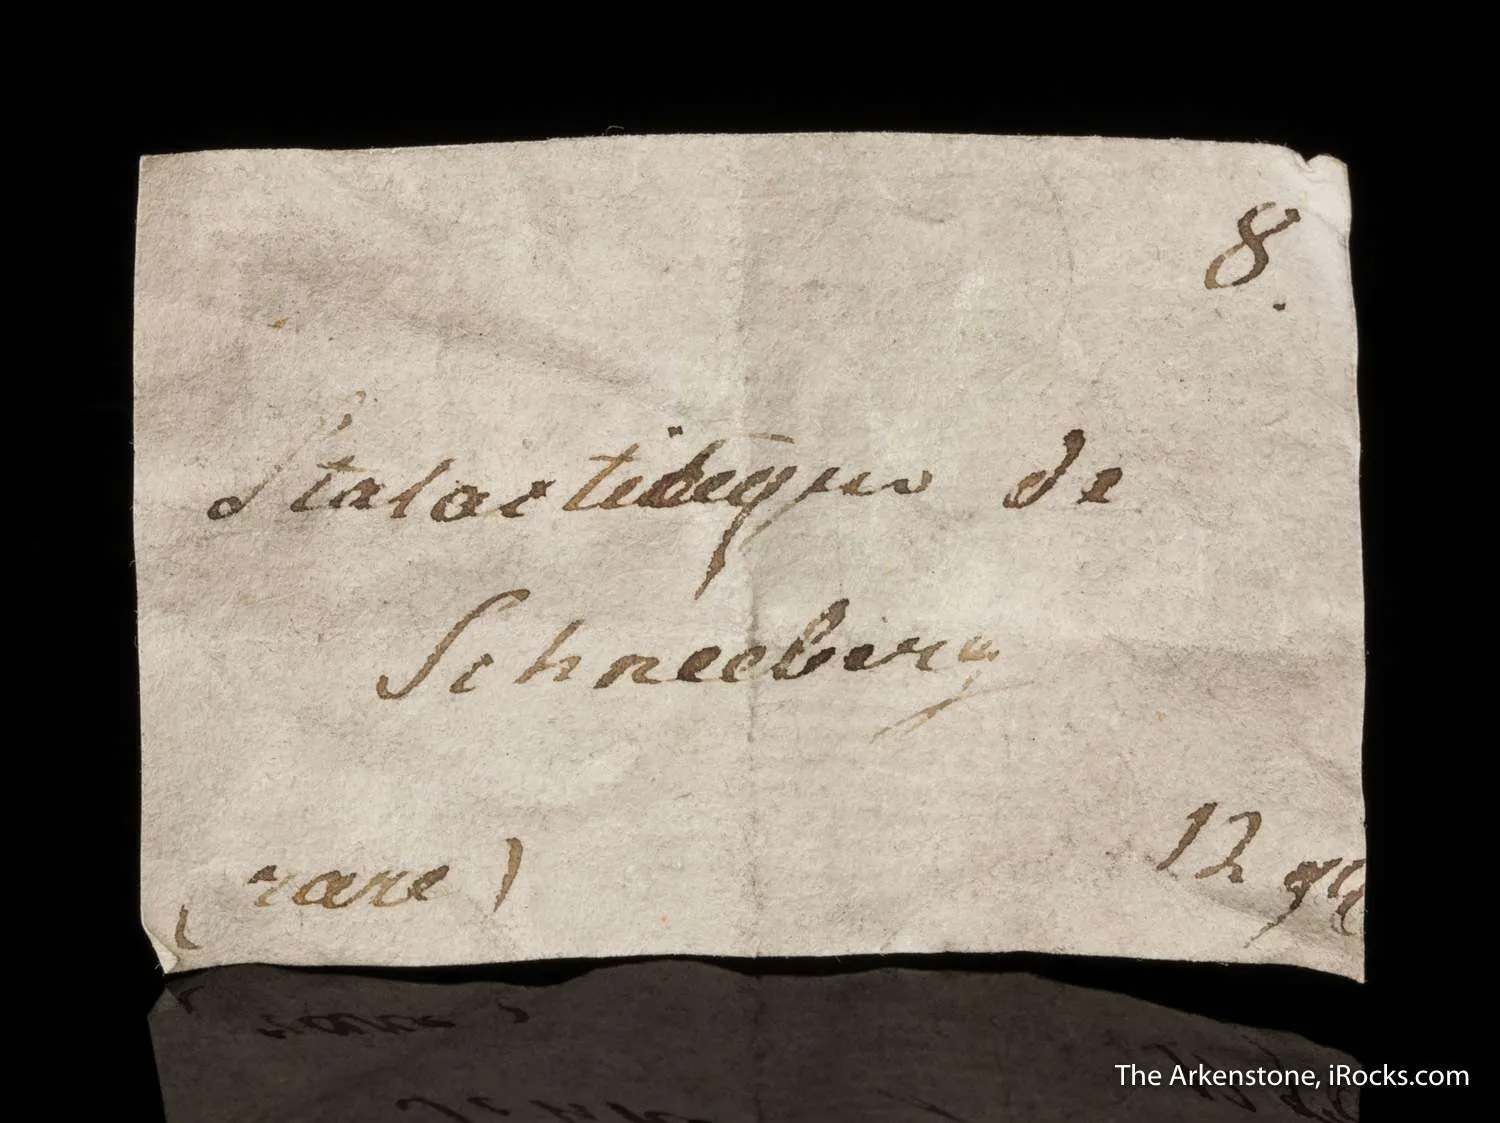 8.
Stalactideque de
Schneeberg
(rare) 12
The Arkenstone, iRocks.com